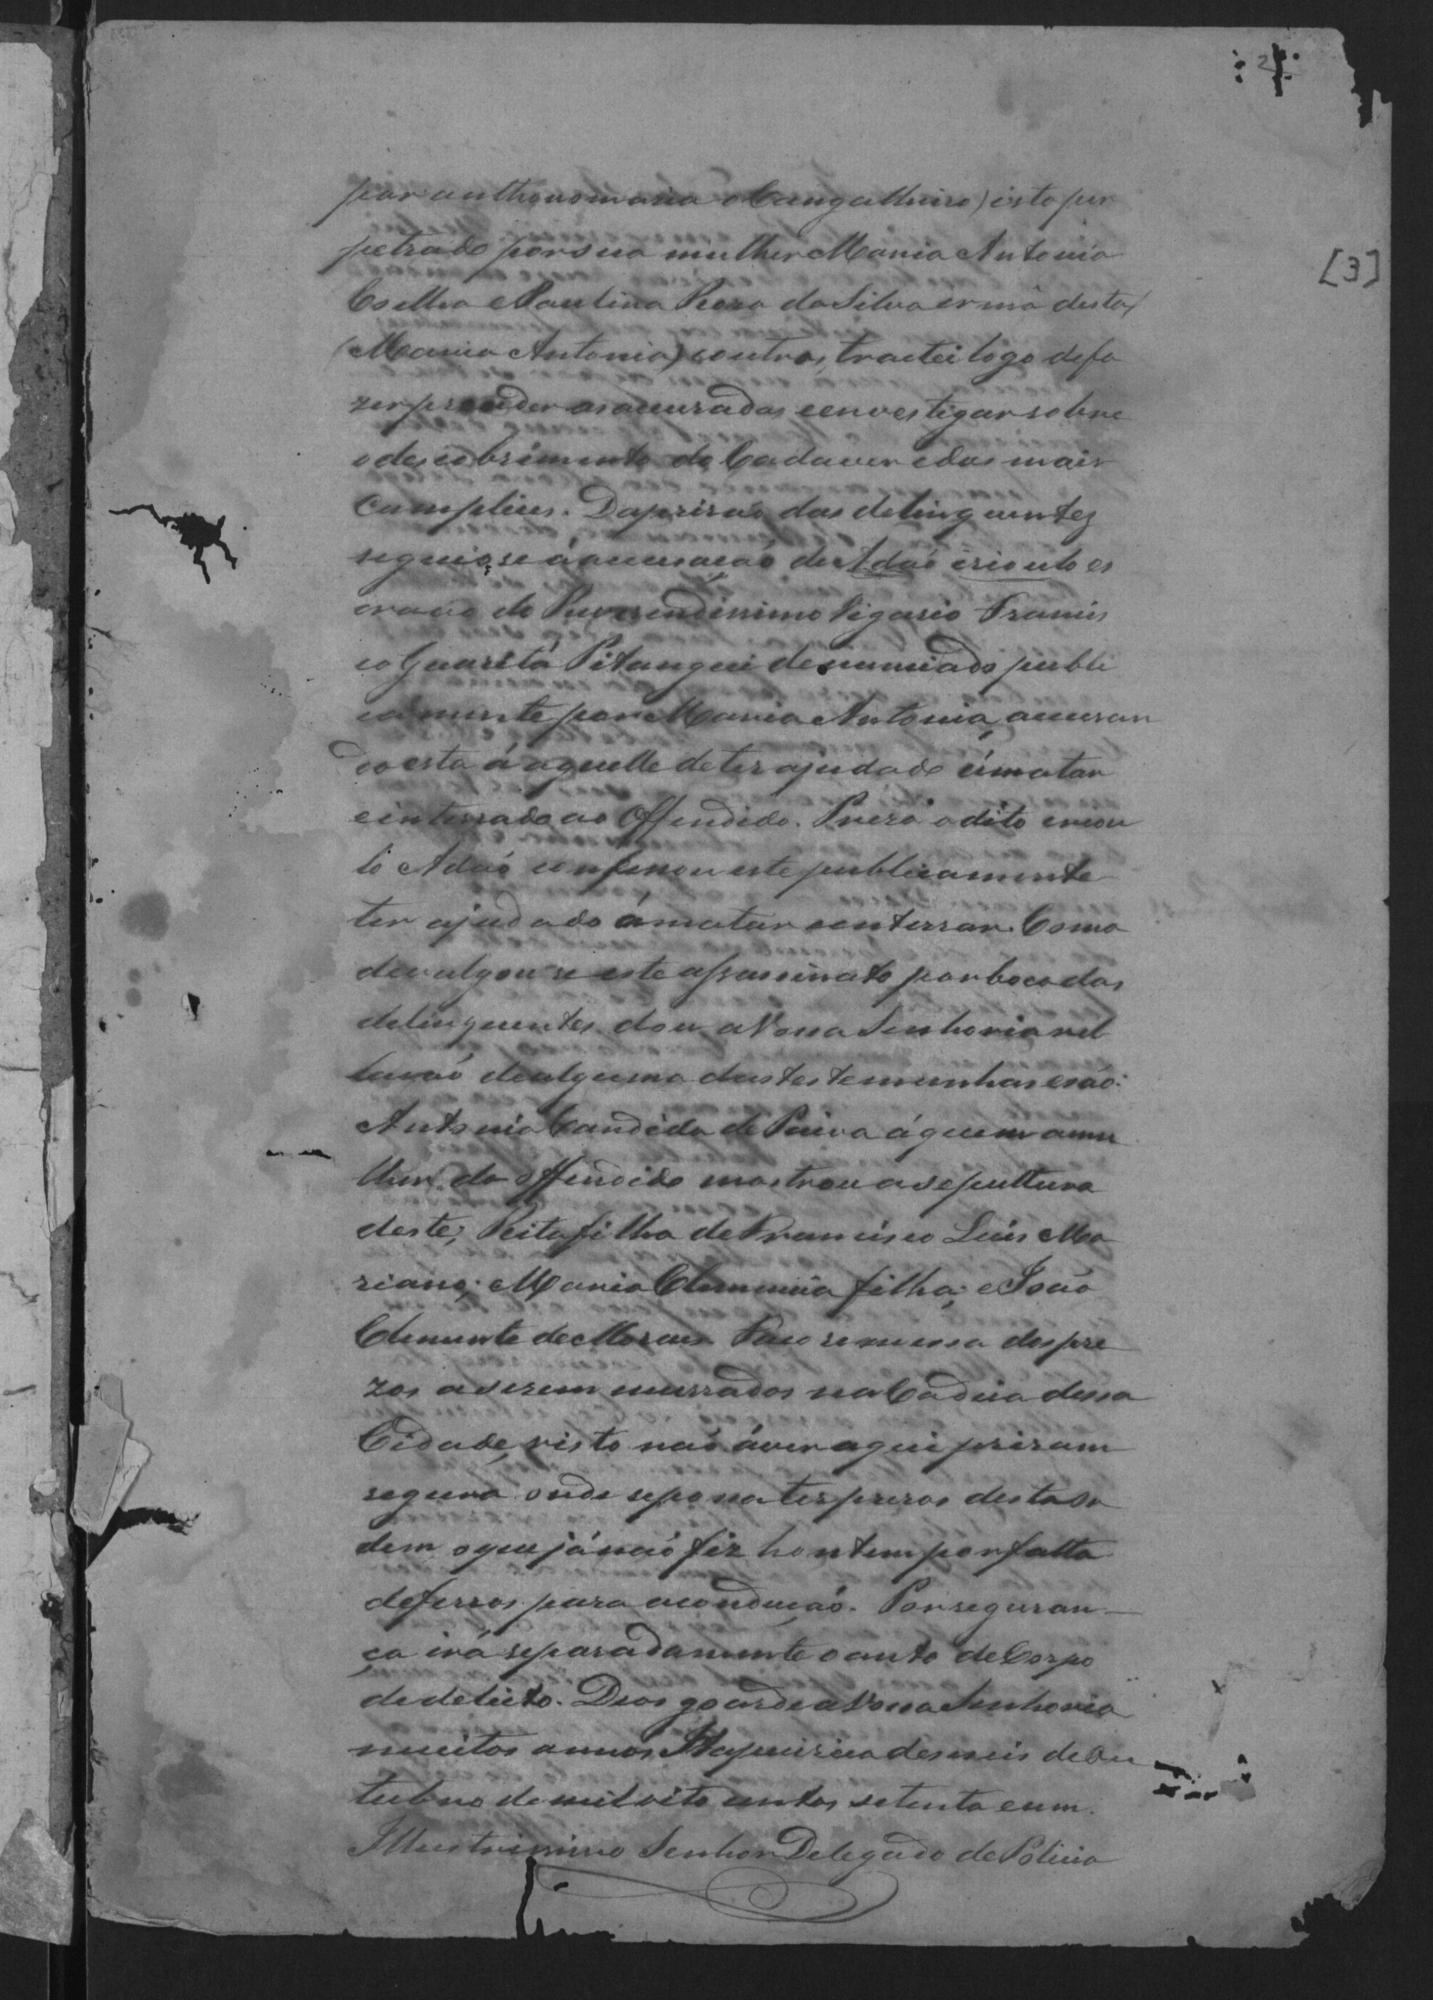 2
[3]
por anthonomasia o Cangalheiro) isto per
petrado por sua mulher Maria Antonia
Coelha e Paulina Roza da Silva ermã desta
(Maria Antonia) e outros, tractei logo de fa
zer prender as acuzadas e envestigar sobre
o descobrimento do Cadaver e dos mais
Complices. Da prisão das delinquentes
seguio se á acusação de Adão crioulo es
cravo do Reverendissimo Vigario Francis
co Guaritá Pitangui denunciado publi
camente por Maria Antonia, acusan
do esta á aquelle de ter ajudado á matar
e interrado ao Offendido. Prezo o dito criou
lo Adão confessou este publicamente
ter ajudado á matar e enterrar. Como
devulgou se este assassinato por boca dos
delinquentes, dou a Vossa Senhoria rel
lação de alguma das testemunhas e são:
Antonio Candido de Paiva á quem a mu
lher do offendido mostrou a sepultura
deste; Rita filha de Francisco Luis Ma
riano; Maria Clemencia filha; e João
Clemente de Moraes. Faço remessa dos pre
zos a serem cerrados na Cadeia dessa
Cidade, visto não áver aqui prizam
segura onde se possa ter prezos desta or
dem o que já não fiz hontem por falta
de ferros para a condução. Por seguran
ça irá separadamente o auto de Corpo
de delicto. Deos goarde a Vossa Senhoria
muitos annos. Itapecirica deseseis de Ou
tubro de mil oito centos setenta e um.
Illustrissimo Senhor Delegado de Policia